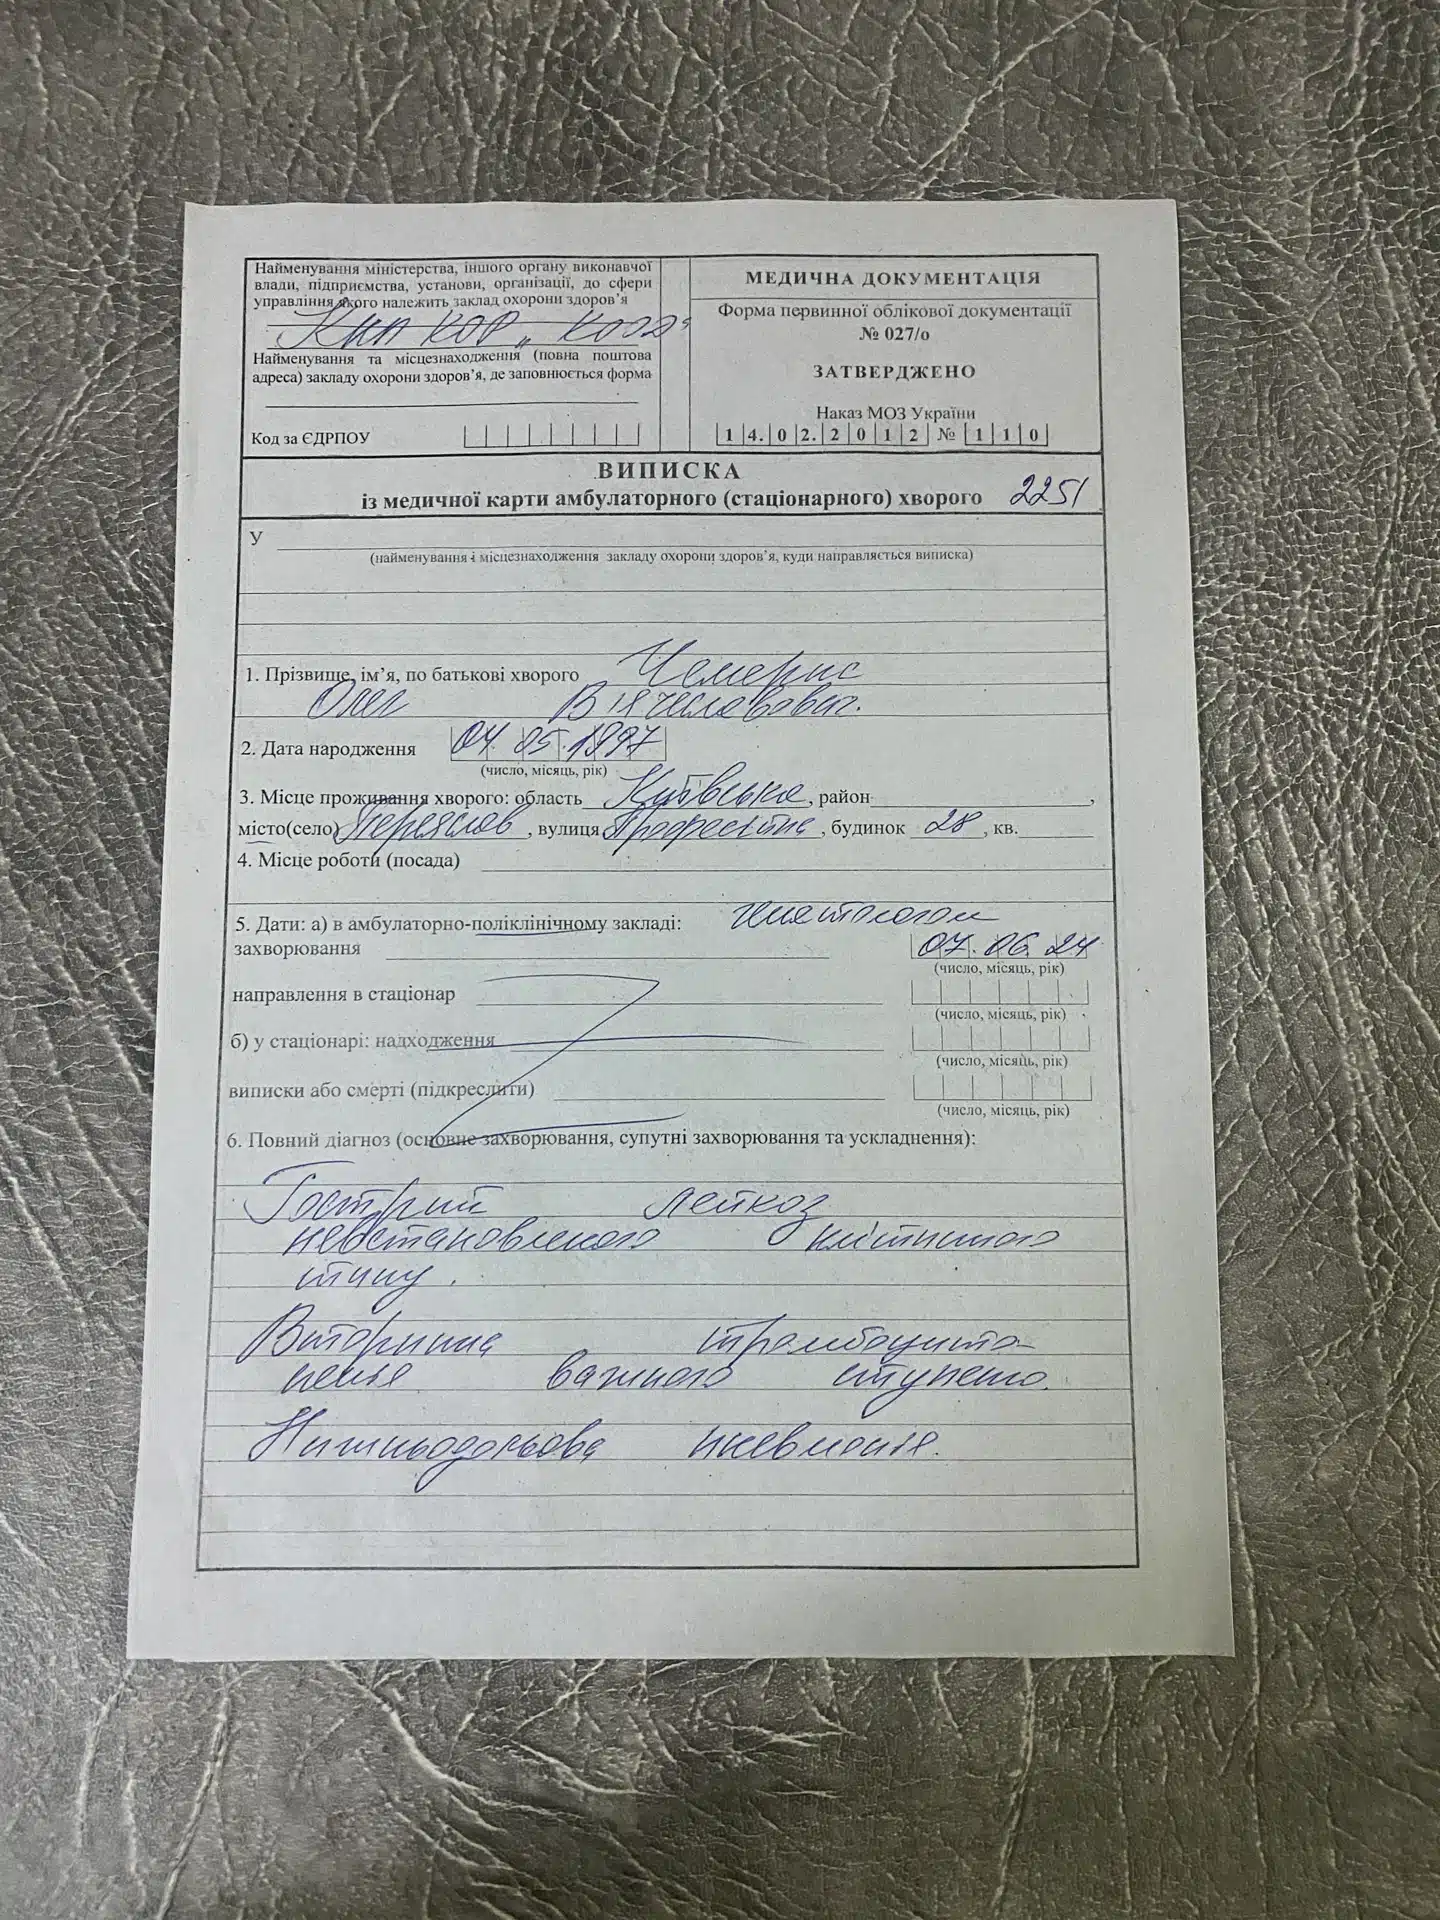 Найменування міністерства, іншого органу виконавчої
влади, підприємства, установи, організації, до сфери
управління якого належить заклад охорони здоров’я
КНП КОР „КООД“
Найменування та місцезнаходження (повна поштова
адреса) закладу охорони здоров’я, де заповнюється форма
Код за ЄДРПОУ
МЕДИЧНА ДОКУМЕНТАЦІЯ
Форма первинної облікової документації
№ 027/о
ЗАТВЕРДЖЕНО
Наказ МОЗ України
14.02.2012 № 110
ВИПИСКА
із медичної карти амбулаторного (стаціонарного) хворого 2251
У
(найменування і місцезнаходження закладу охорони здоров’я, куди направляється виписка)
1. Прізвище, ім’я, по батькові хворого Чемерис
Олег Вячеславович.
2. Дата народження 04.05.1997
(число, місяць, рік)
3. Місце проживання хворого: область Київська, район ,
місто(село) Переяслав, вулиця , будинок 28, кв.
4. Місце роботи (посада)
5. Дати: а) в амбулаторно-поліклінічному закладі: гематологом
захворювання 07.06.24
(число, місяць, рік)
направлення в стаціонар
(число, місяць, рік)
б) у стаціонарі: надходження
(число, місяць, рік)
виписки або смерті (підкреслити)
(число, місяць, рік)
6. Повний діагноз (основне захворювання, супутні захворювання та ускладнення):
Гострий лейкоз
невстановленого клітинного
типу.
Вторинна тромбоцито-
пенія важкого ступеню.
Нижньодольова пневмонія.